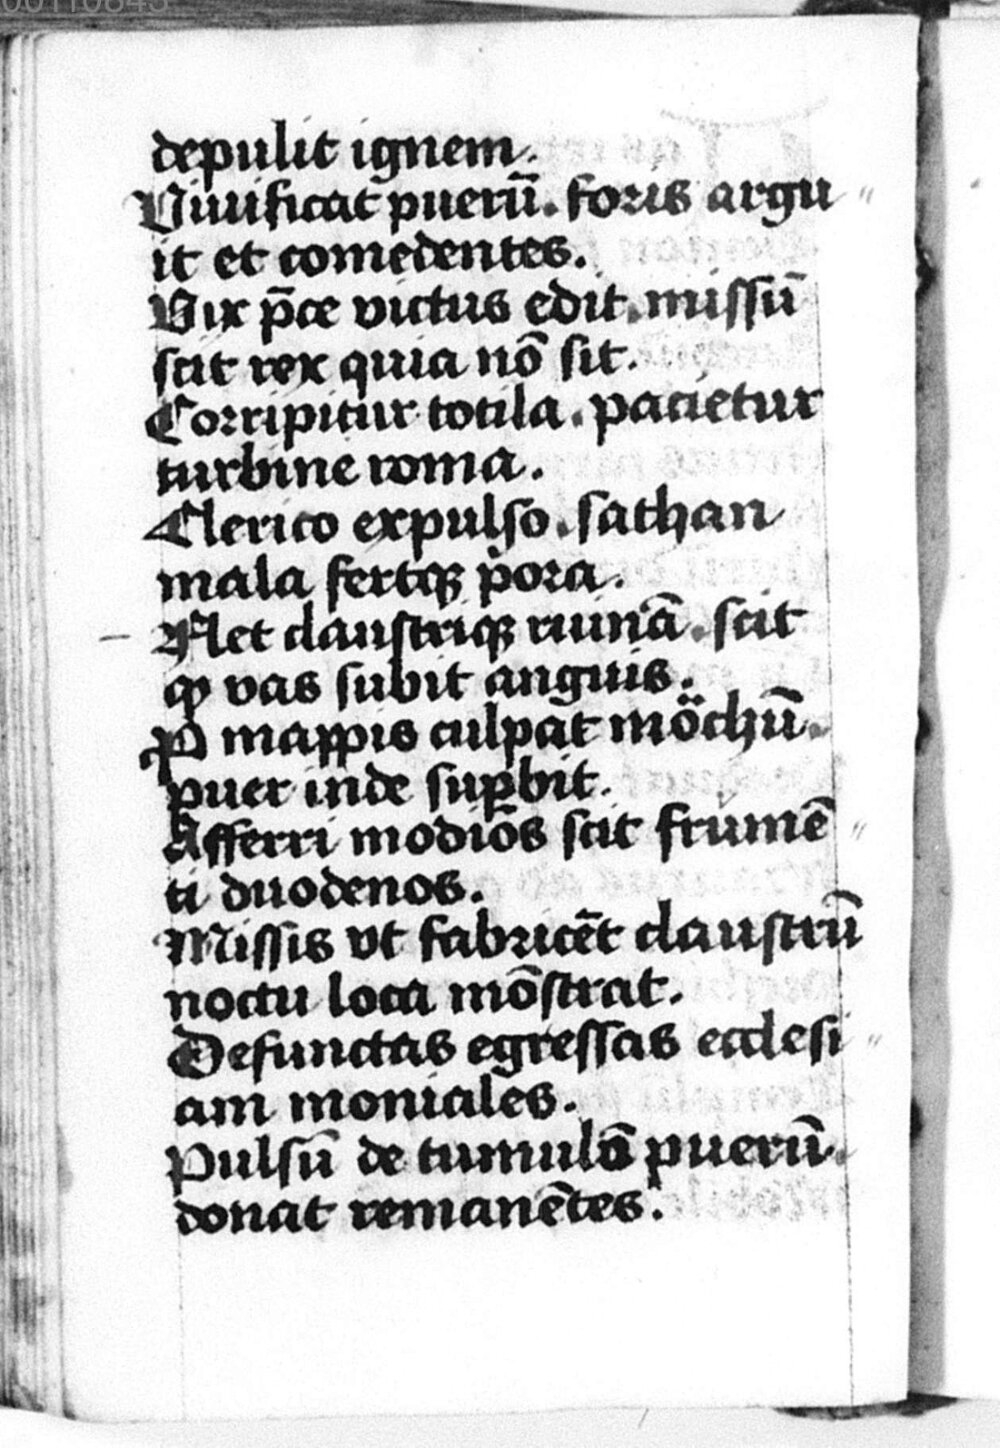 depulit ignem.
Viuificat puerū. foris argu〃
it et comedentes.
Vix p̄ce victus edit. missū
scit rex quia nō sit.
Corripitur totila. pacietur
turbine roma.
Clerico expulso. sathan
mala fertqꝫ p̍ora.
Flet claustriqꝫ ruinā. scit
qꝙ vas subit anguis.
P mappis culpāt mo̎chū.
puer inde suꝑbit.
Afferri modios scit frumē〃
ti duodenos.
Missis vt fabricēt claustrū
noctu loca mōstrat.
Defunctas egressas ecclesi〃
am moniales.
Pulsū de tumulo puerū.
donat remanētes.